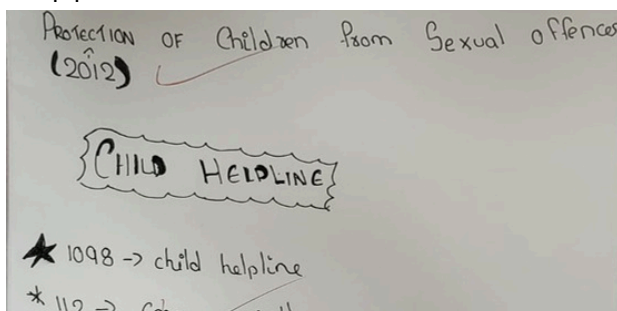 PROTECTION OF Children from Sexual offences
(2012)
CHILD HELPLINE
★ 1098 -> child helpline
* 112 ->